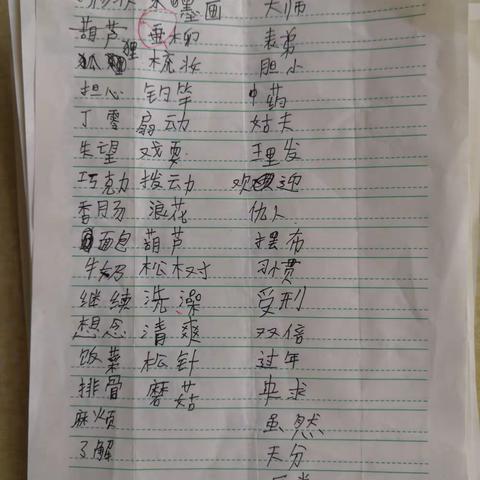 墨画 大师
葫芦 垂柳 表弟
狐狸 梳妆 胆小
担心 钓竿 中药
丁零 扇动 姑夫
失望 戏耍 理发
巧克力 拨动 欢迎
香肠 浪花 仙人
面包 葫芦 摆布
牛奶 松树 习惯
继续 洗澡 受刑
想念 清爽 双倍
饭菜 松针 过年
排骨 蘑菇 央求
麻烦 虽然
了解 天分